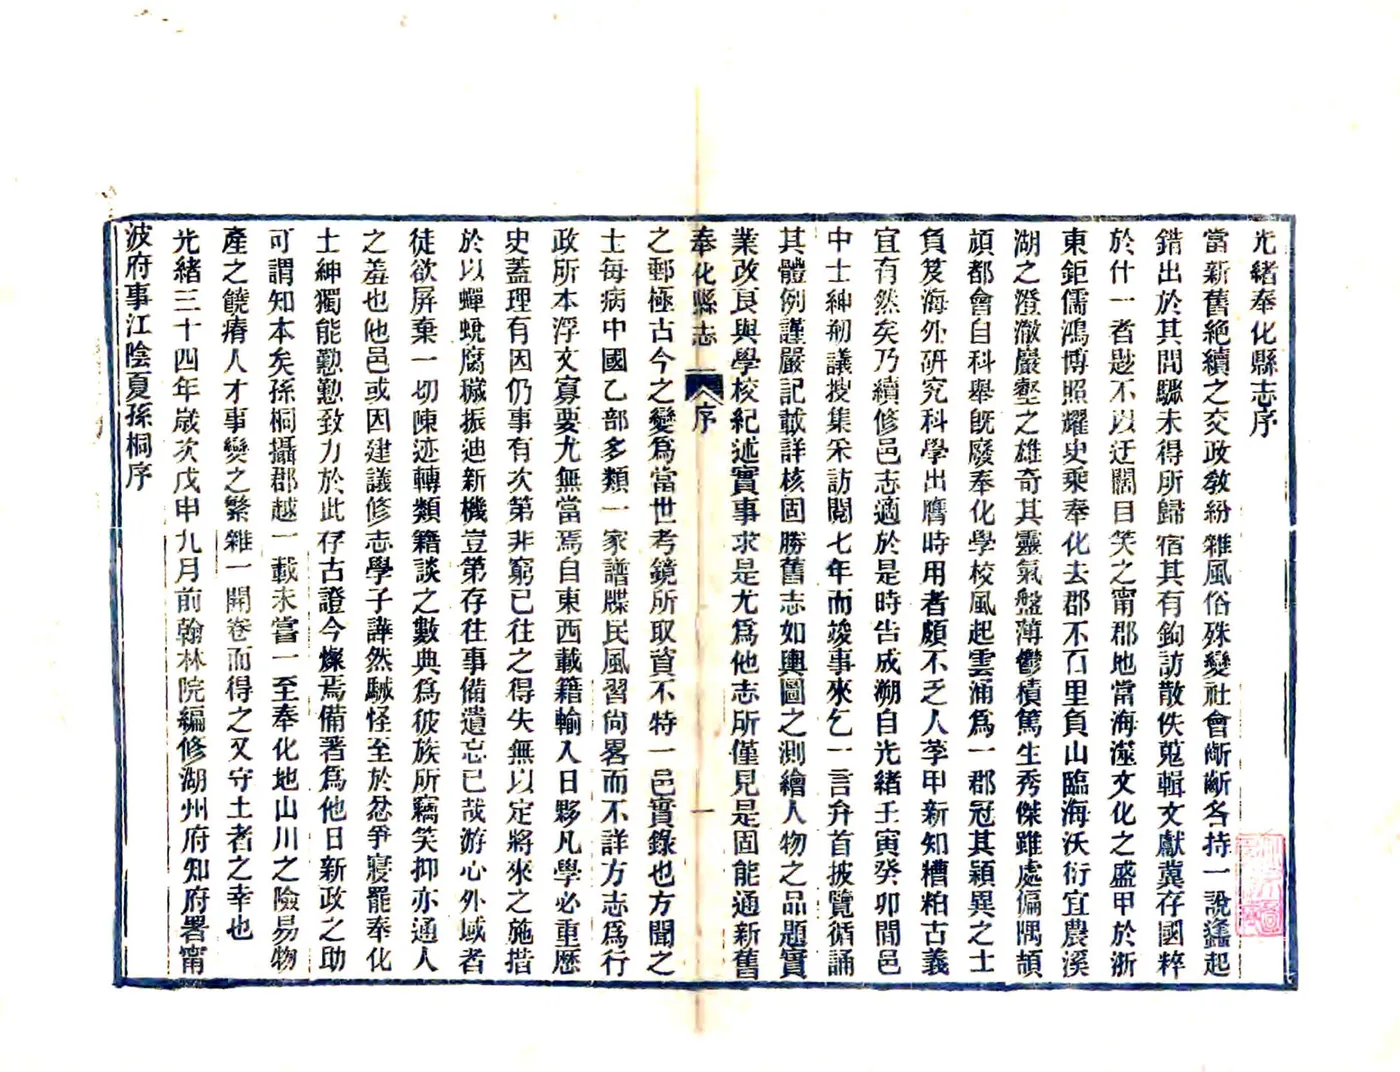 光緒奉化縣志序
當新舊絕續之交政敎紛雜風俗殊變社會齗齗各持一說蠭起
錯出於其間驟未得所歸宿其有鉤訪散佚蒐輯文獻冀存國粹
於什一者尟不以迂闊目笑之甯郡地當海澨文化之盛甲於浙
東鉅儒鴻博照耀史乘奉化去郡不百里負山臨海沃衍宜農溪
湖之澄澈巖壑之雄奇其靈氣盤薄鬱積篤生秀傑雖處偏隅頡
頏都會自科舉旣廢奉化學校風起雲涌爲一郡冠其穎異之士
負笈海外研究科學出膺時用者頗不乏人孳甲新知糟粕古義
宜有然矣乃續修邑志適於是時告成溯自光緒壬寅癸卯間邑
中士紳刱議搜集采訪閱七年而竣事來乞一言弁首披覽循誦
其體例謹嚴記載詳核固勝舊志如輿圖之測繪人物之品題實
業改良與學校紀述實事求是尤爲他志所僅見是固能通新舊
奉化縣志 序 一
之郵極古今之變爲當世考鏡所取資不特一邑實錄也方聞之
士每病中國乙部多類一家譜牒民風習尙畧而不詳方志爲行
政所本浮文寡要尤無當焉自東西載籍輸入日夥凡學必重歷
史蓋理有因仍事有次第非窮已往之得失無以定將來之施措
於以蟬蛻腐穢振迪新機豈第存往事備遺忘已哉游心外域者
徒欲屏棄一切陳迹轉類籍談之數典爲彼族所竊笑抑亦通人
之羞也他邑或因建議修志學子譁然駴怪至於忿爭寢罷奉化
士紳獨能懃懃致力於此存古證今燦焉備著爲他日新政之助
可謂知本矣孫桐攝郡越一載未嘗一至奉化地山川之險易物
產之饒瘠人才事變之繁雜一開卷而得之又守土者之幸也
光緒三十四年歲次戊申九月前翰林院編修湖州府知府署甯
波府事江陰夏孫桐序